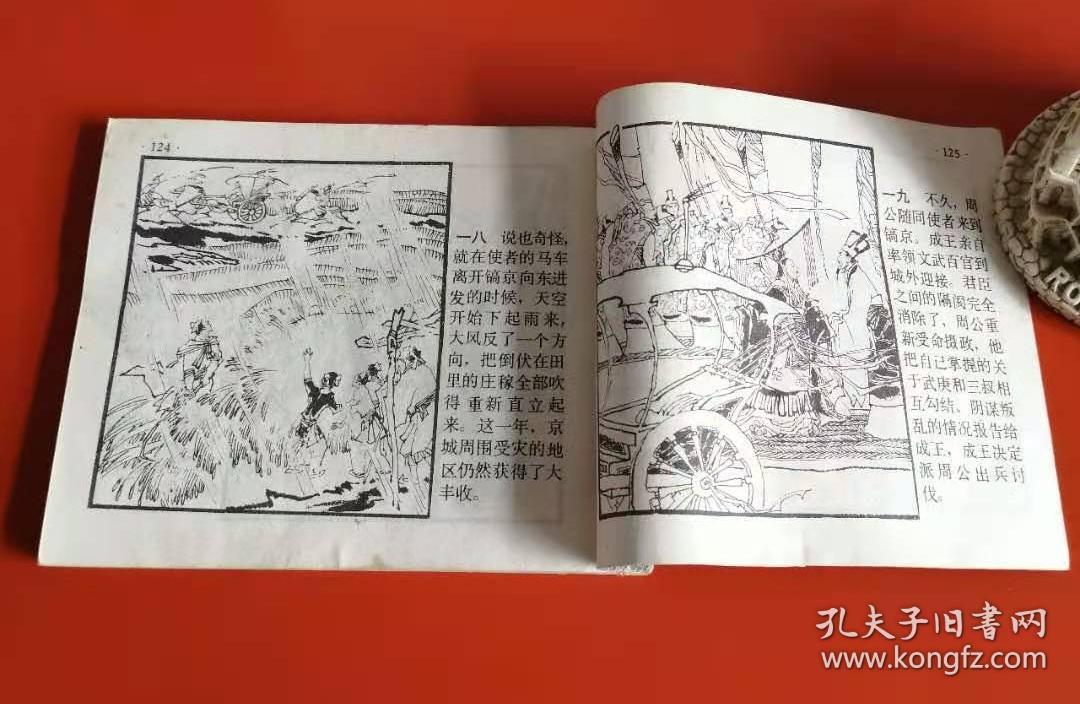 ·124·
一八 说也奇怪，
就在使者的马车
离开镐京向东进
发的时候，天空
开始下起雨来，
大风反了一个方
向，把倒伏在田
里的庄稼全部吹
得重新直立起
来。这一年，京
城周围受灾的地
区仍然获得了大
丰收。
·125·
一九 不久，周
公随同使者来到
镐京。成王亲自
率领文武百官到
城外迎接。君臣
之间的隔阂完全
消除了，周公重
新受命摄政，他
把自己掌握的关
于武庚和三叔相
互勾结、阴谋叛
乱的情况报告给
成王，成王决定
派周公出兵讨
伐。
RO
孔夫子旧书网
www.kongfz.com